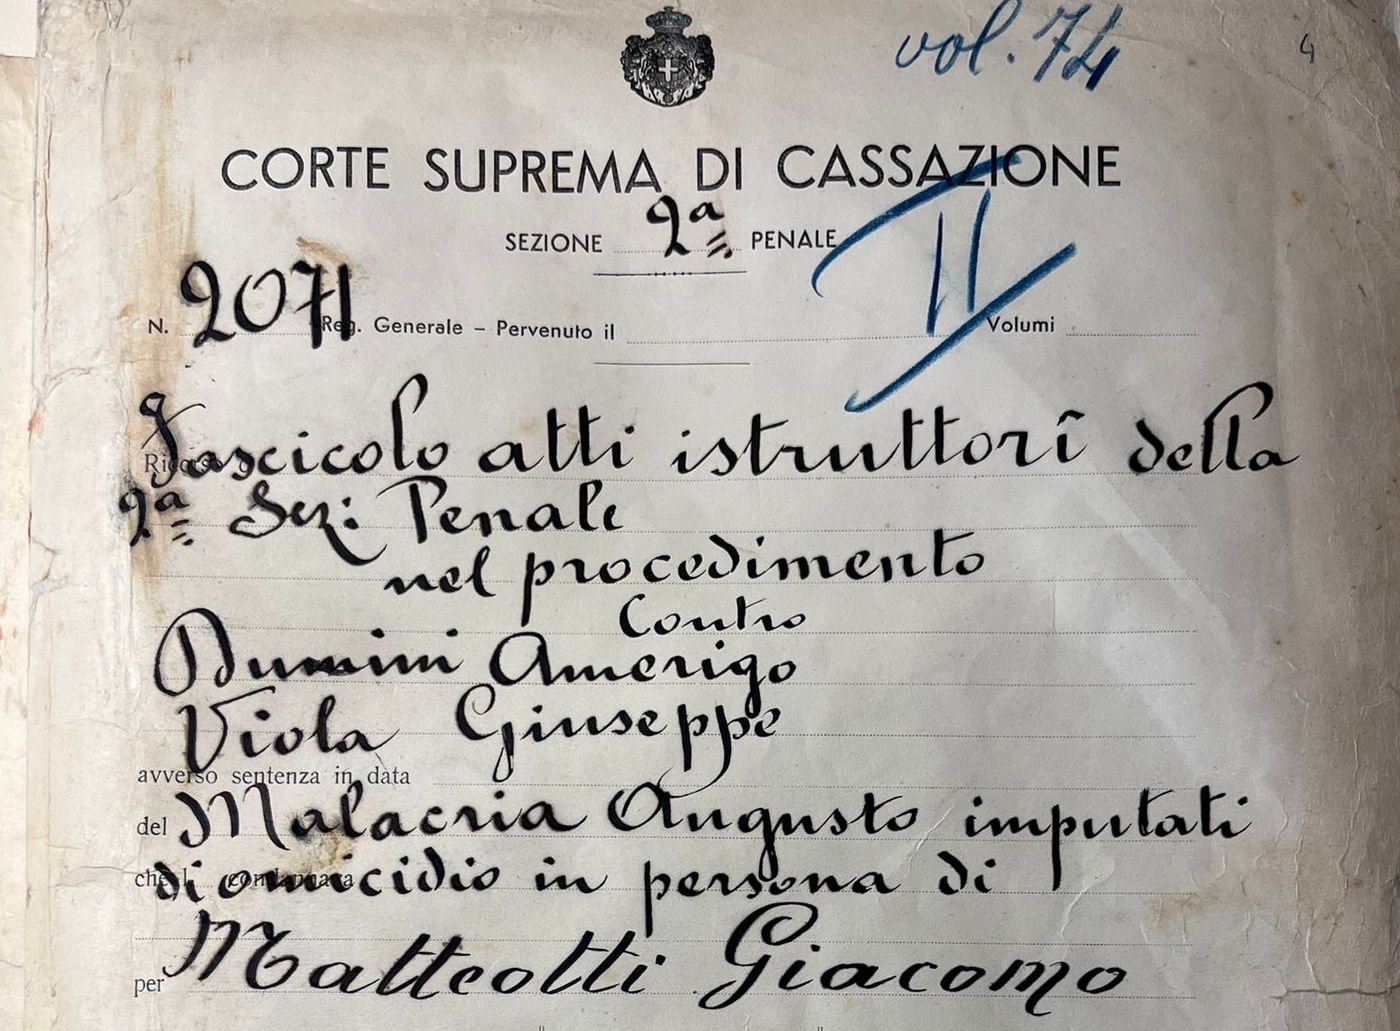 vol. 74
4
CORTE SUPREMA DI CASSAZIONE
SEZIONE 2ª PENALE
II
N. 2071 Reg. Generale – Pervenuto il Volumi
Fascicolo atti istruttorî della
2ª Sez: Penale
nel procedimento
Contro
Dumini Amerigo
Viola Giuseppe
avverso sentenza in data
del Malacria Augusto imputati
di omicidio in persona di
per Matteotti Giacomo